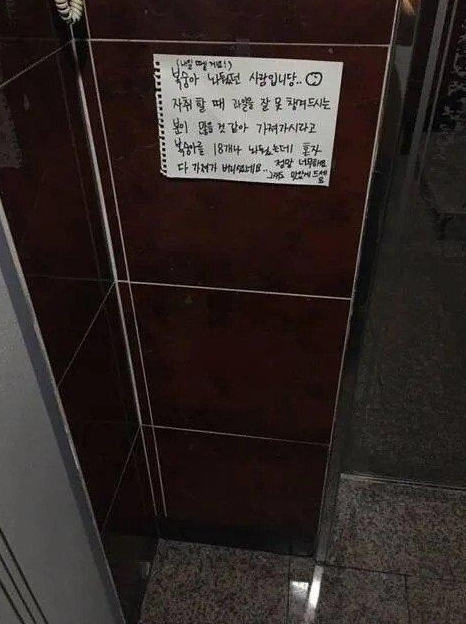 (내일 뗄게요!)
복숭아 놔뒀던 사람입니당..
자취할 때 과일을 잘 못 챙겨드시는
분이 많을 것 같아 가져가시라고
복숭아를 18개나 놔뒀는데 혼자
다 가져가 버리셨네요.. 정말 너무해요
그래도 맛있게 드세요